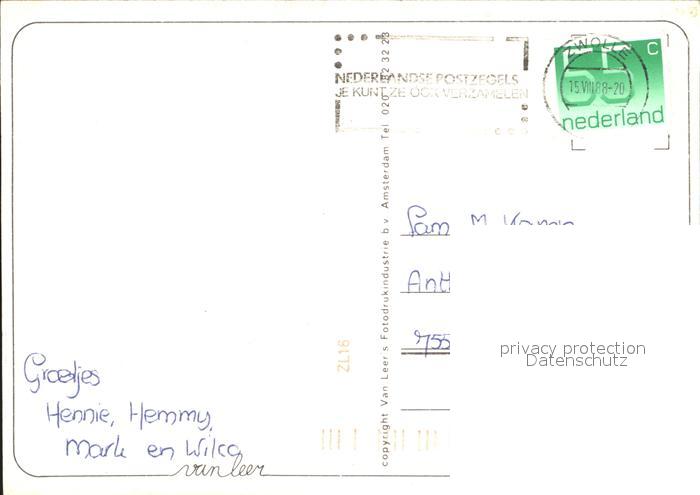 NEDERLANDSE POSTZEGELS
JE KUNT ZE OOK VERZAMELEN
ZWOLLE
15.VIII.88-20
65 c
nederland
copyright Van Leer's Fotodrukindustrie b.v. Amsterdam Tel 020
32 23
Fam M
755
privacy protection
Datenschutz
ZL16
Groetjes
Hennie, Hemmy,
Mark en Wilco
van leer